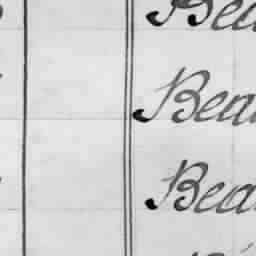 Bea
Bea
Bea